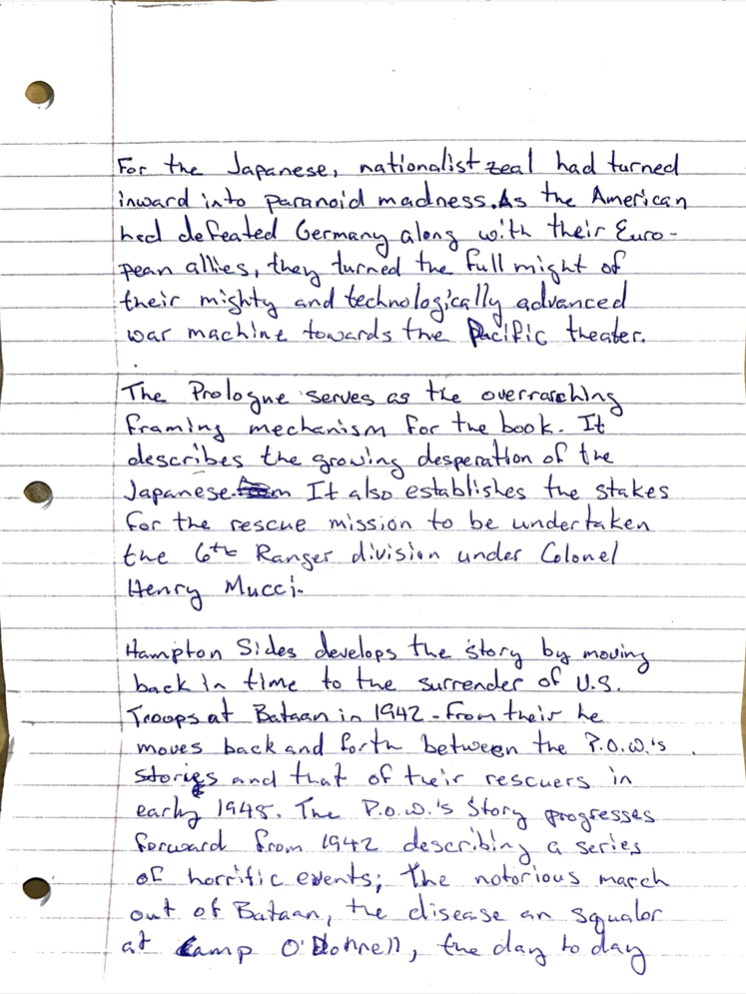 For the Japanese, nationalist zeal had turned
inward into paranoid madness. As the American
had defeated Germany along with their Euro-
pean allies, they turned the full might of
their mighty and technologically advanced
war machine towards the Pacific theater.
The Prologue serves as the overrarching
framing mechanism for the book. It
describes the growing desperation of the
Japanese. It also establishes the stakes
for the rescue mission to be undertaken
the 6th Ranger division under Colonel
Henry Mucci.
Hampton Sides develops the story by moving
back in time to the surrender of U.S.
Troops at Bataan in 1942. From their he
moves back and forth between the P.O.W.'s
stories and that of their rescuers in
early 1945. The P.O.W.'s Story progresses
forward from 1942 describing a series
of horrific events; The notorious march
out of Bataan, the disease an squalor
at Camp O'Donnell, the day to day